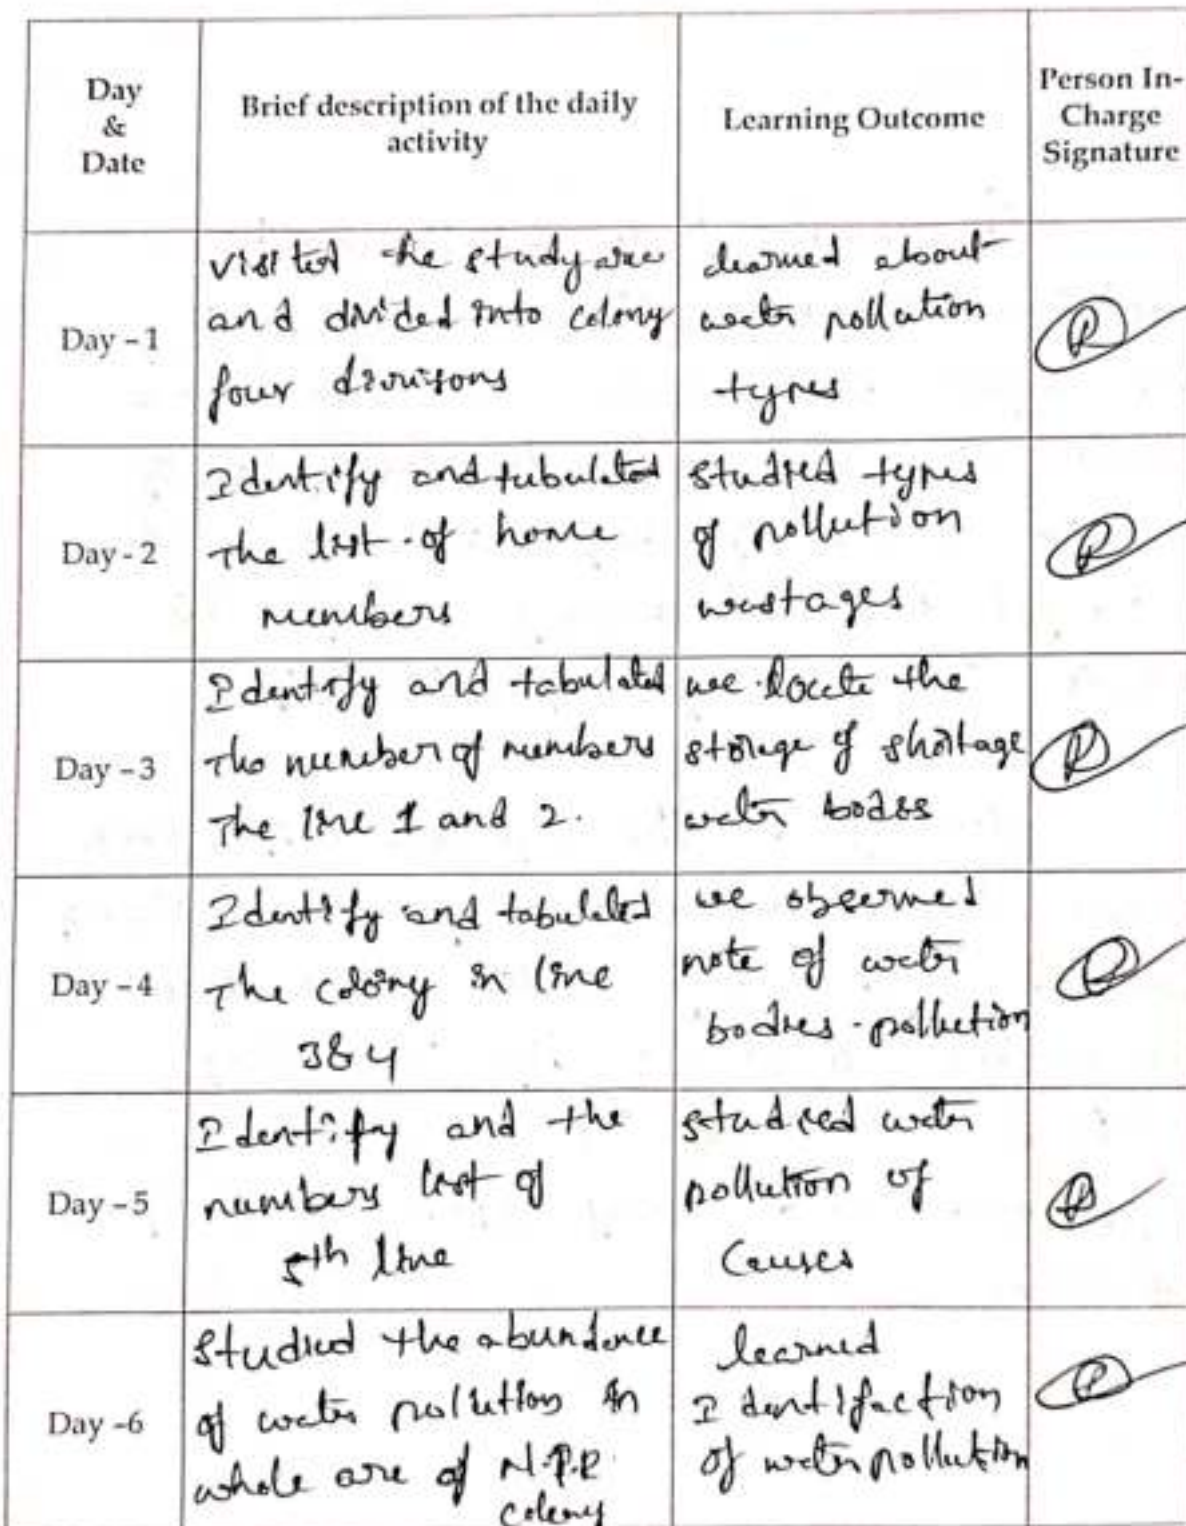 Day
&
Date
Brief description of the daily
activity
Learning Outcome
Person In-
Charge
Signature
Day - 1
visited the study are
and divided into colony
four divisons
learned about
water pollution
types
Day - 2
Identify and tubulated
The list of home
numbers
studied types
of pollution
wastages
Day - 3
Identify and tabulated
The number of numbers
The line 1 and 2.
we locate the
storage of shortage
water bodes
Day - 4
Identify and tabulated
The colony in line
3 & 4
we observed
note of water
bodies pollution
Day - 5
Identify and the
numbers list of
5th line
studied water
pollution of
Causes
Day - 6
Studied the abundance
of water pollution in
whole are of N.P.P.
colony
learned
Identifaction
of water pollution